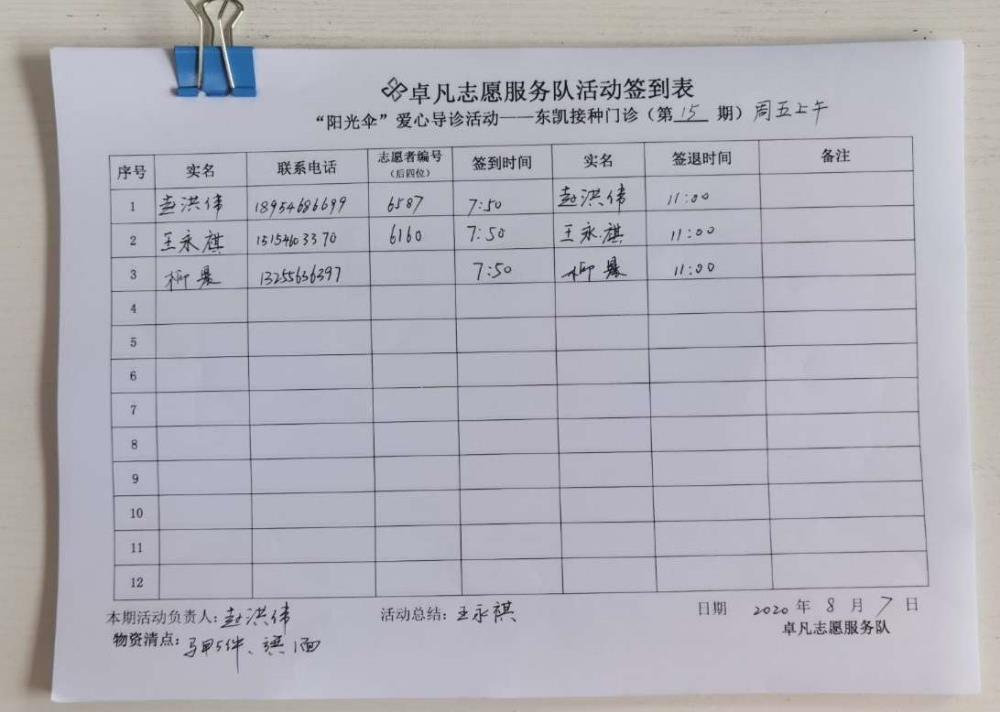 卓凡志愿服务队活动签到表
“阳光伞”爱心导诊活动——东凯接种门诊（第 15 期）周五上午
序号 实名 联系电话 志愿者编号（后四位） 签到时间 实名 签退时间 备注
1 赵洪伟 18954686699 6587 7:50 赵洪伟 11:00
2 王永祺 15154603370 6160 7:50 王永祺 11:00
3 柳 13255636397 7:50 柳 11:00
4
5
6
7
8
9
10
11
12
本期活动负责人：赵洪伟 活动总结：王永祺 日期 2020 年 8 月 7 日
物资清点：马甲5件、旗1面 卓凡志愿服务队